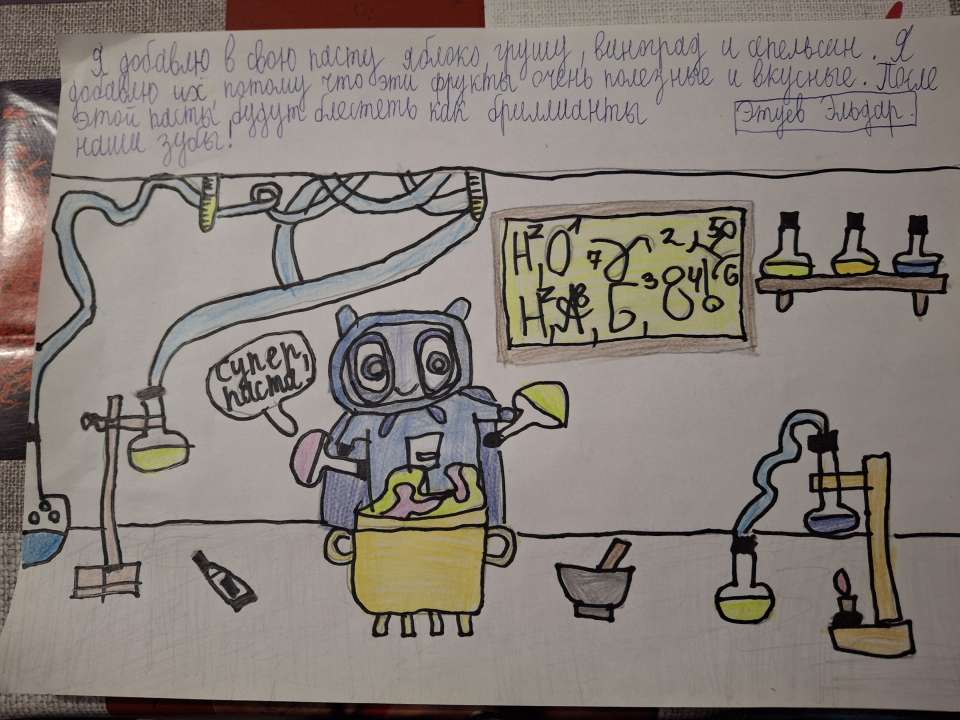 Я добавлю в свою пасту яблоко, грушу, виноград и апельсин. Я
добавлю их потому что эти фрукты очень полезные и вкусные. После
этой пасты, будут блестеть как бриллианты
наши зубы!
Этуев Эльдар.
Супер
паста!
H²O
7
2
50
3
8
4
6
H²
6,